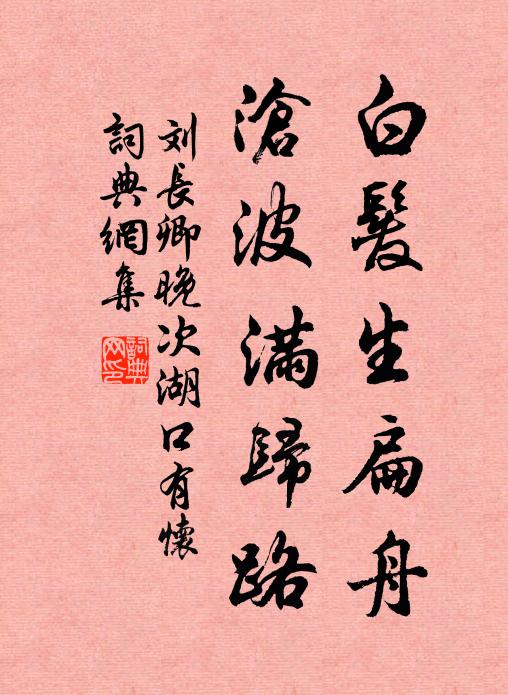 白髮生扁舟
滄波滿歸路
刘長卿晚次湖口有懷
詞典網集
詞典網印